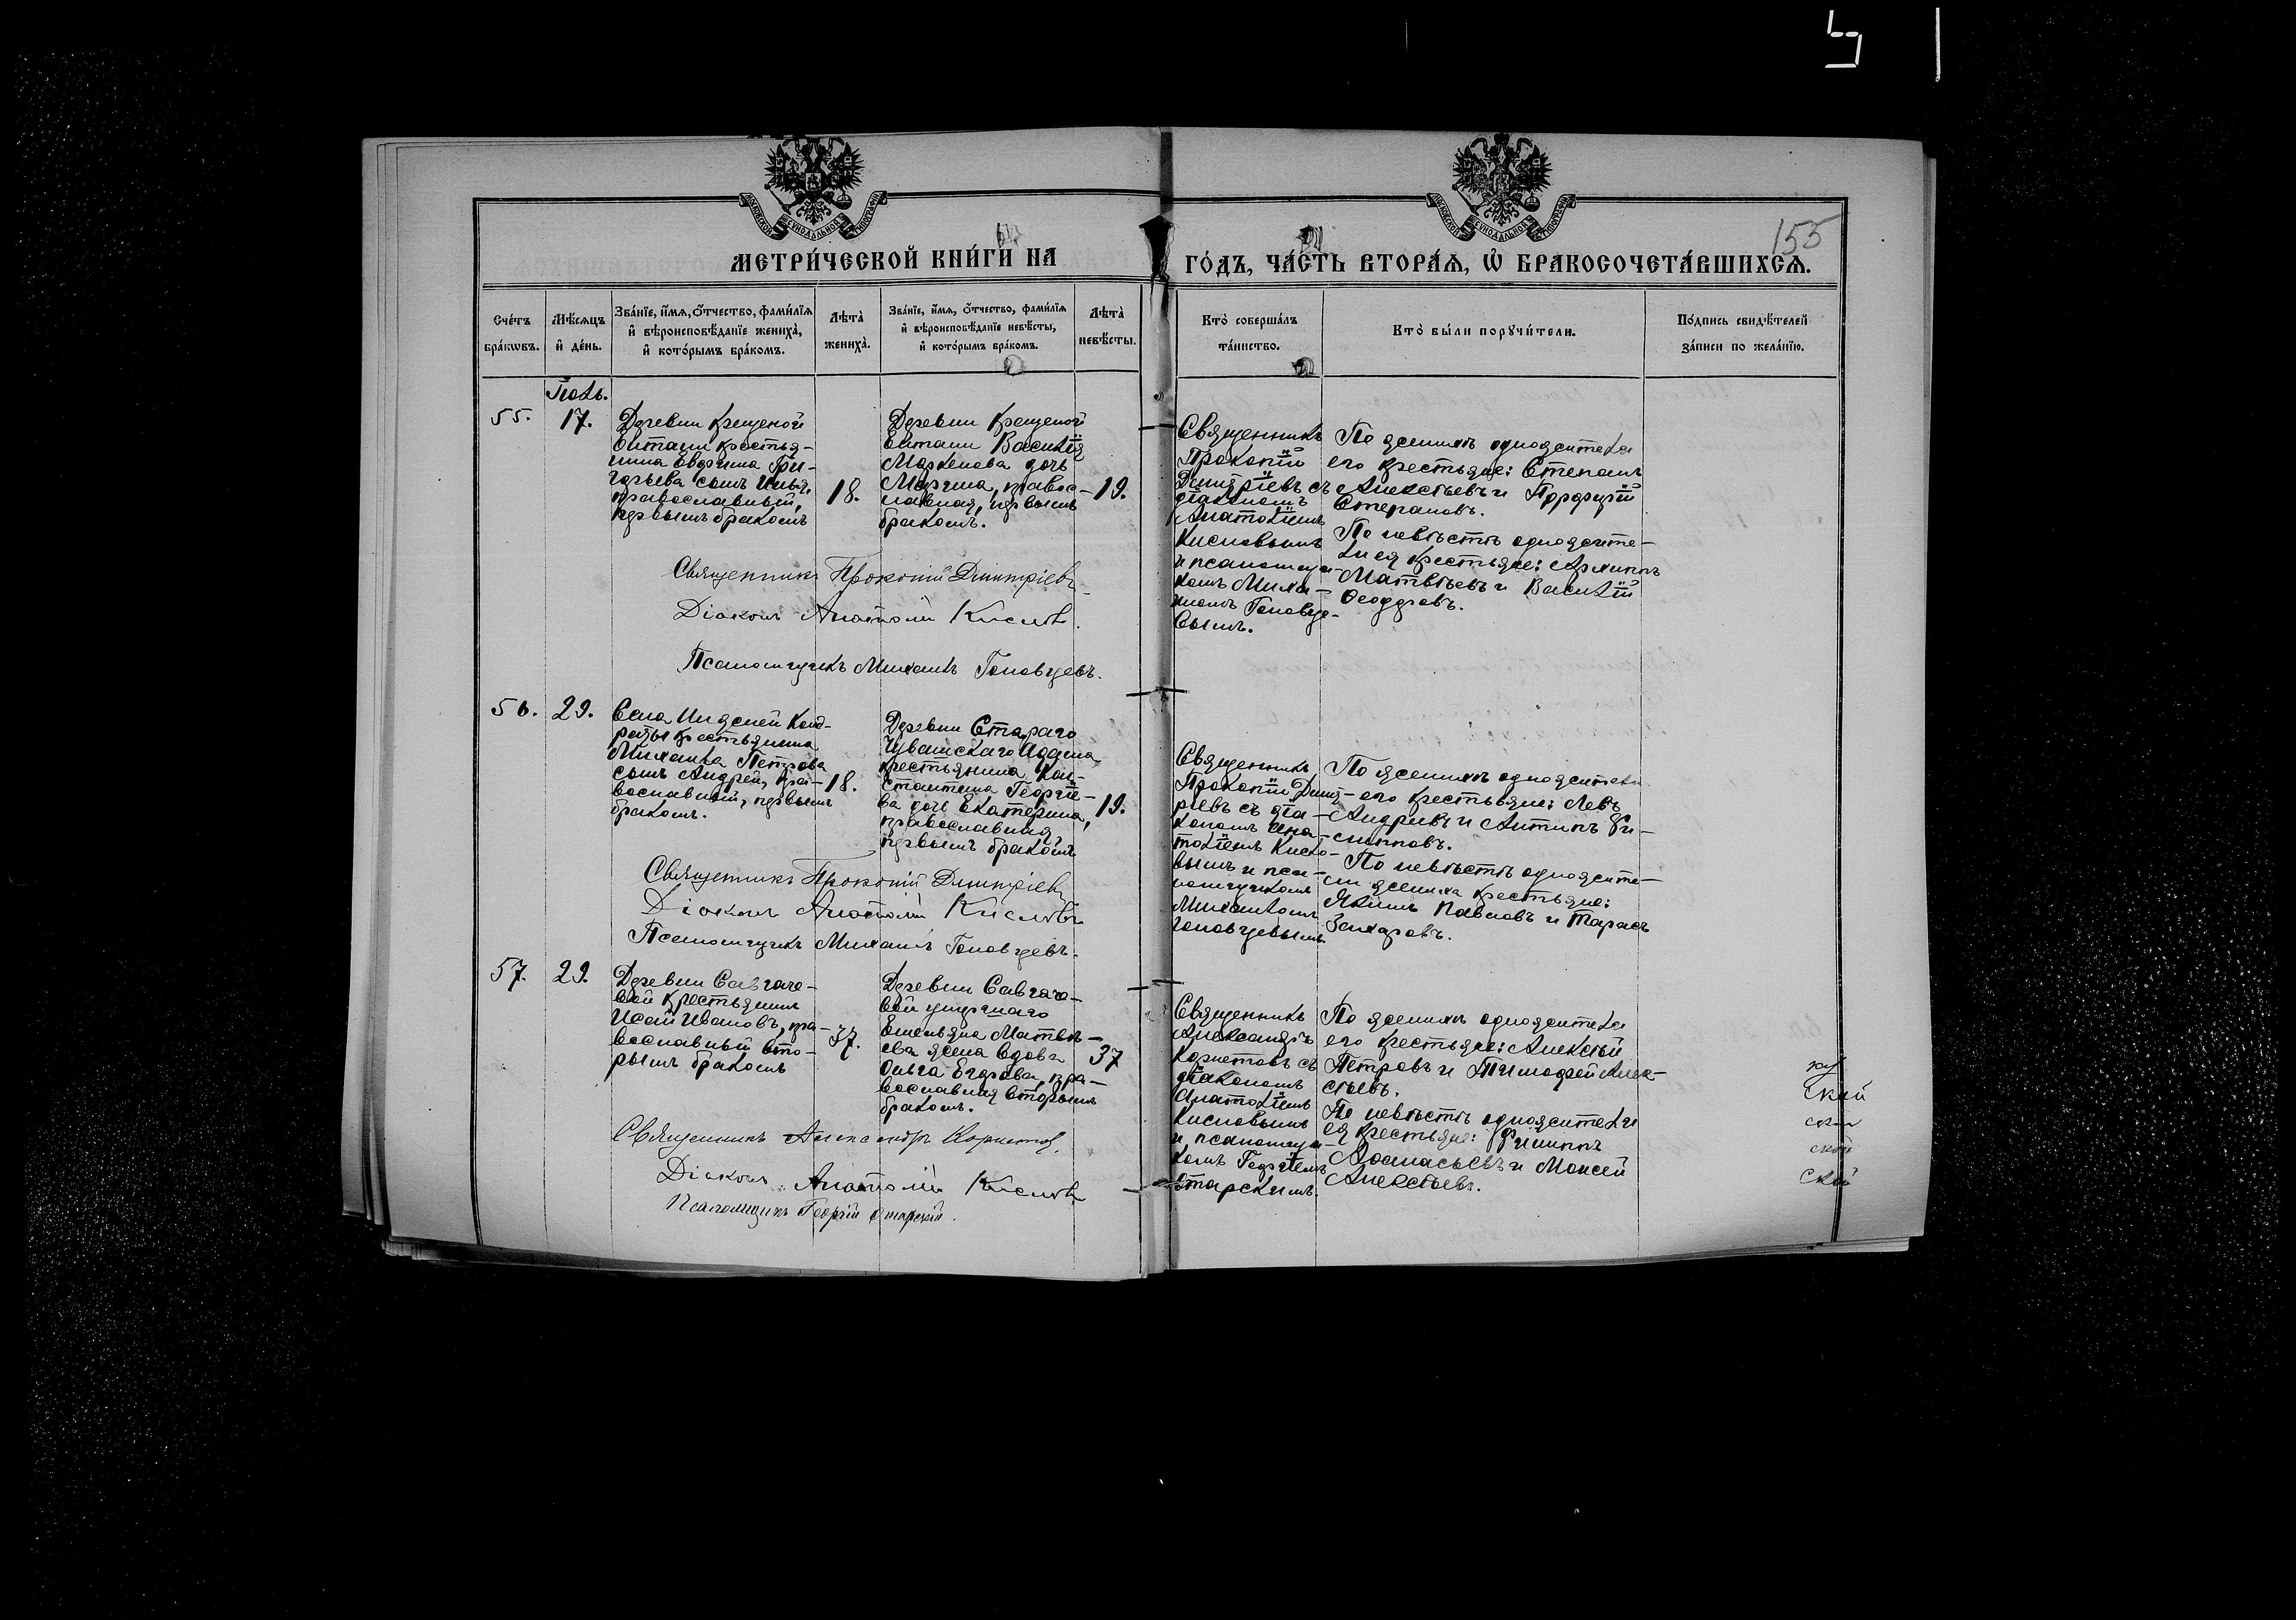 155
МЕТРИ́ЧЕСКОЙ КНИ́ГИ НА
ГО́ДЪ, ЧА́СТЬ ВТОРА́Ѧ, Ѽ БРАКОСОЧЕТА́ВШИХСѦ.
Сче́тъ бра́кѡвъ.
Мѣ́сѧцъ и҆ де́нь.
Зва́нїе, и҆́мѧ, ѻ҆́тчество, фами́лїѧ
и҆ вѣроисповѣ́данїе жениха̀,
и҆ кото́рымъ бра́комъ.
Лѣта̀ жениха̀.
Зва́нїе, и҆́мѧ, ѻ҆́тчество, фами́лїѧ
и҆ вѣроисповѣ́данїе невѣ́сты,
и҆ кото́рымъ бра́комъ.
Лѣта̀ невѣ́сты.
Кто̀ соверша́лъ
та́инство.
Кто̀ бы́ли порꙋчи́тели.
По́дпись свидѣ́телей
за́писи по жела́нїю.
Іюль.
55.
17.
Деревни Крещеной
Елтани крестья-
нина Евфима Гри-
горьева сынъ Илья,
православный,
первымъ бракомъ
18.
Деревни Крещеной
Елтани Василія
Маркелова дочь
Марина, правос-
лавная, первымъ
бракомъ.
19.
Священникъ
Прокопій
Димитріевъ съ
діакономъ
Анатоліемъ
Кисловымъ
и псаломщи-
комъ Миха-
иломъ Головце-
вымъ.
По женихѣ однодеревцы
его крестьяне: Степанъ
Алексѣевъ и Порфирій
Степановъ.
По невѣстѣ
ея крестьяне: Архиппъ
Матвѣевъ и Василій
Ѳеодоровъ.
Священникъ Прокопій Димитріевъ
Діаконъ Анатолій Кисловъ.
Псаломщикъ Михаилъ Головцевъ.
56.
29.
Села
крестьянина
Михаила Петрова
сынъ Андрей, пра-
вославный, первымъ
бракомъ.
18.
Деревни Стараго
Чувашскаго Адама
крестьянина Кон-
стантина Георгіе-
ва дочь Екатерина,
православная
первымъ бракомъ
19.
Священникъ
Прокопій Димит-
ріевъ съ діа-
кономъ Ана-
толіемъ Кисло-
вымъ и пса-
ломщикомъ
Михаиломъ
Головцевымъ
По женихѣ
его крестьяне: Левъ
Андреевъ и Антипъ Фи-
липповъ.
По невѣстѣ
жениха крестьяне:
Якимъ Павловъ и Тарасъ
Захаровъ.
Священникъ Прокопій Димитріевъ
Діаконъ Анатолій Кисловъ
Псаломщикъ Михаилъ Головцевъ.
57.
29.
Деревни Савгаче-
вой крестьянинъ
Исай Ивановъ, пра-
вославный вто-
рымъ бракомъ
37.
Деревни Савгаче-
вой умершаго
Емельяна Матвѣ-
ева жена вдова
Ольга Егорова, пра-
вославная вторымъ
бракомъ.
37
Священникъ
Александръ
съ
діакономъ
Анатоліемъ
Кисловымъ
и псаломщи-
комъ Георгіемъ
По женихѣ
его крестьяне: Алексѣй
Петровъ и Тимофей Алек-
сѣевъ.
По невѣстѣ
ея крестьяне: Филиппъ
Аѳанасьевъ и Моисей
Алексѣевъ.
Священникъ Александръ
Діаконъ Анатолій Кисловъ
Псаломщикъ Георгій
ской
ской
ской